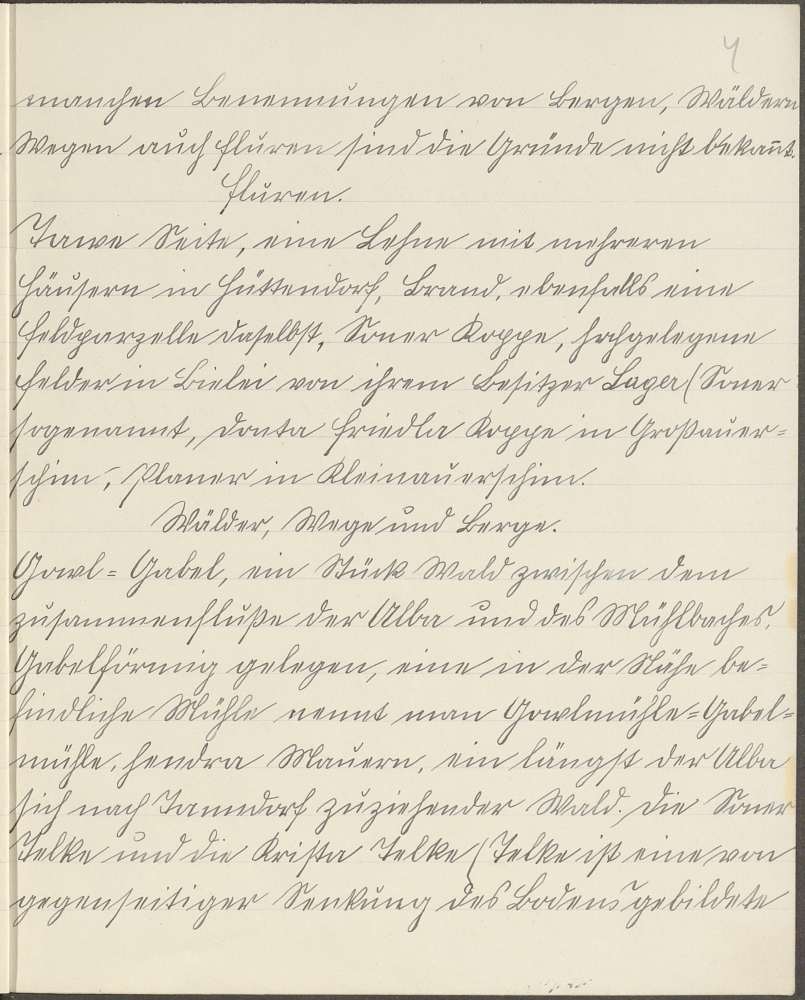 4
manchen Benennungen von Bergen, Wäldern
Wegen auch Fluren sind die Gründe nicht bekan̄t.
Fluren.
Tawe Seite, eine Lehne mit mehreren
Häusern in Hüttendorf, Brand, ebenfalls eine
Feldparzelle daselbst, Soner Koppe, hochgelegene
Felder in Bielei von ihrem Besitzer Lager (Soner
sogenannt, Donta Friedla Koppe in Großauer=
schim, Planer in Kleinauerschim.
Wälder, Wege und Berge.
Gowl= Gabel, ein Stück Wald zwischen dem
zusammenfluße der Alba und des Mühlbaches,
Gabelförmig gelegen, eine in der Nähe be=
findliche Mühle nennt man Gowlmühle=Gabel=
mühle, Hendra Mauern, ein längst der Alba
sich nach Tanndorf zuziehender Wald. Die Soner
Telke und die Krista Telke (Telke ist eine von
gegenseitiger Senkung des Bodens gebildete